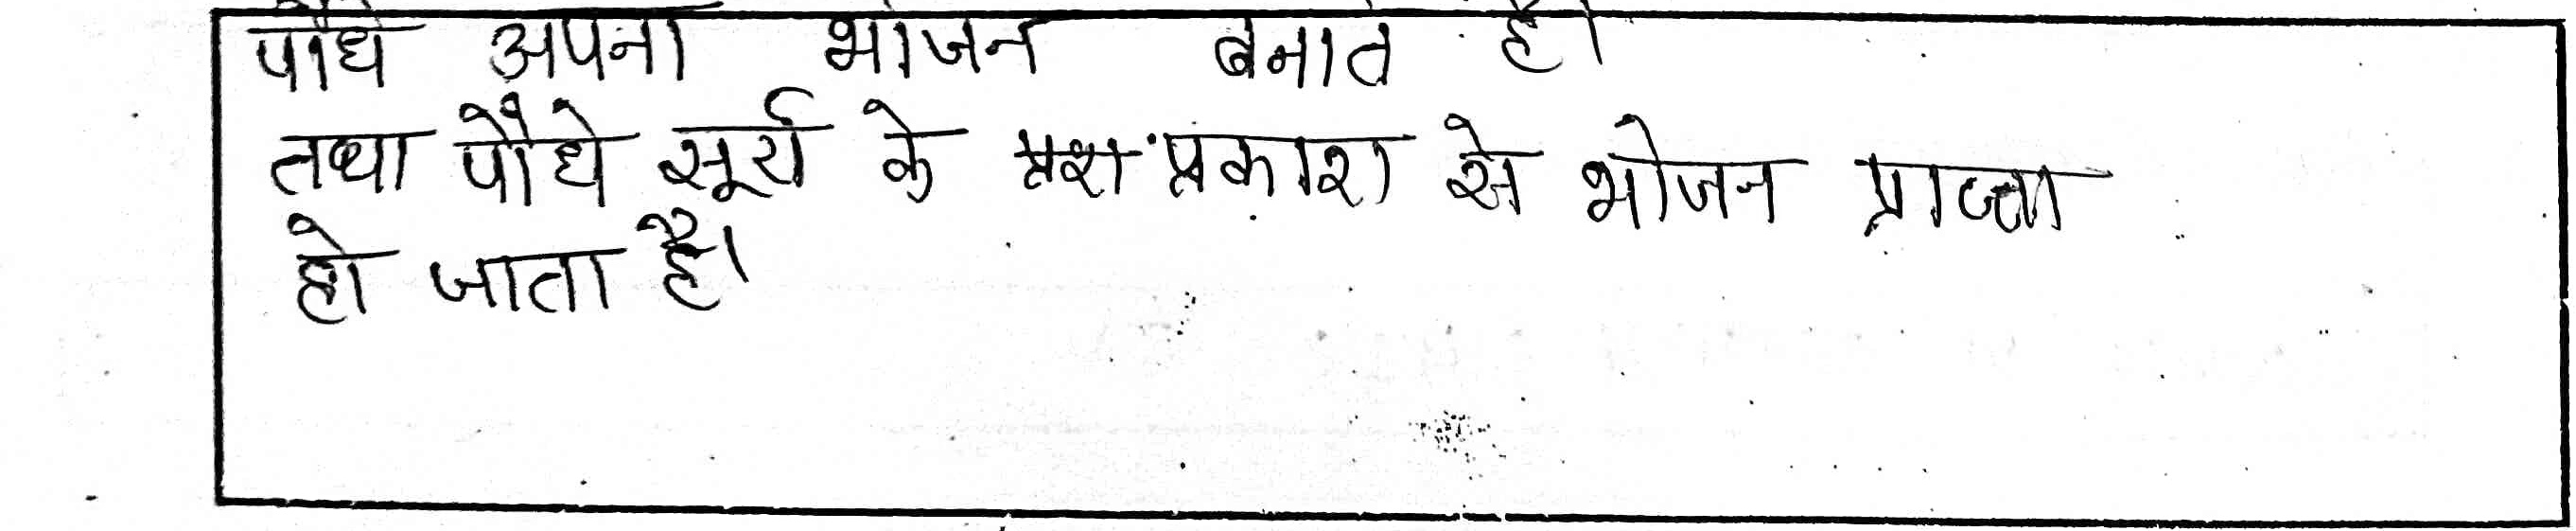 पौधे अपना भोजन बनाते है।
तथा पौधे सूर्य के प्रकाश से भोजन प्राप्ता
हो जाता है।